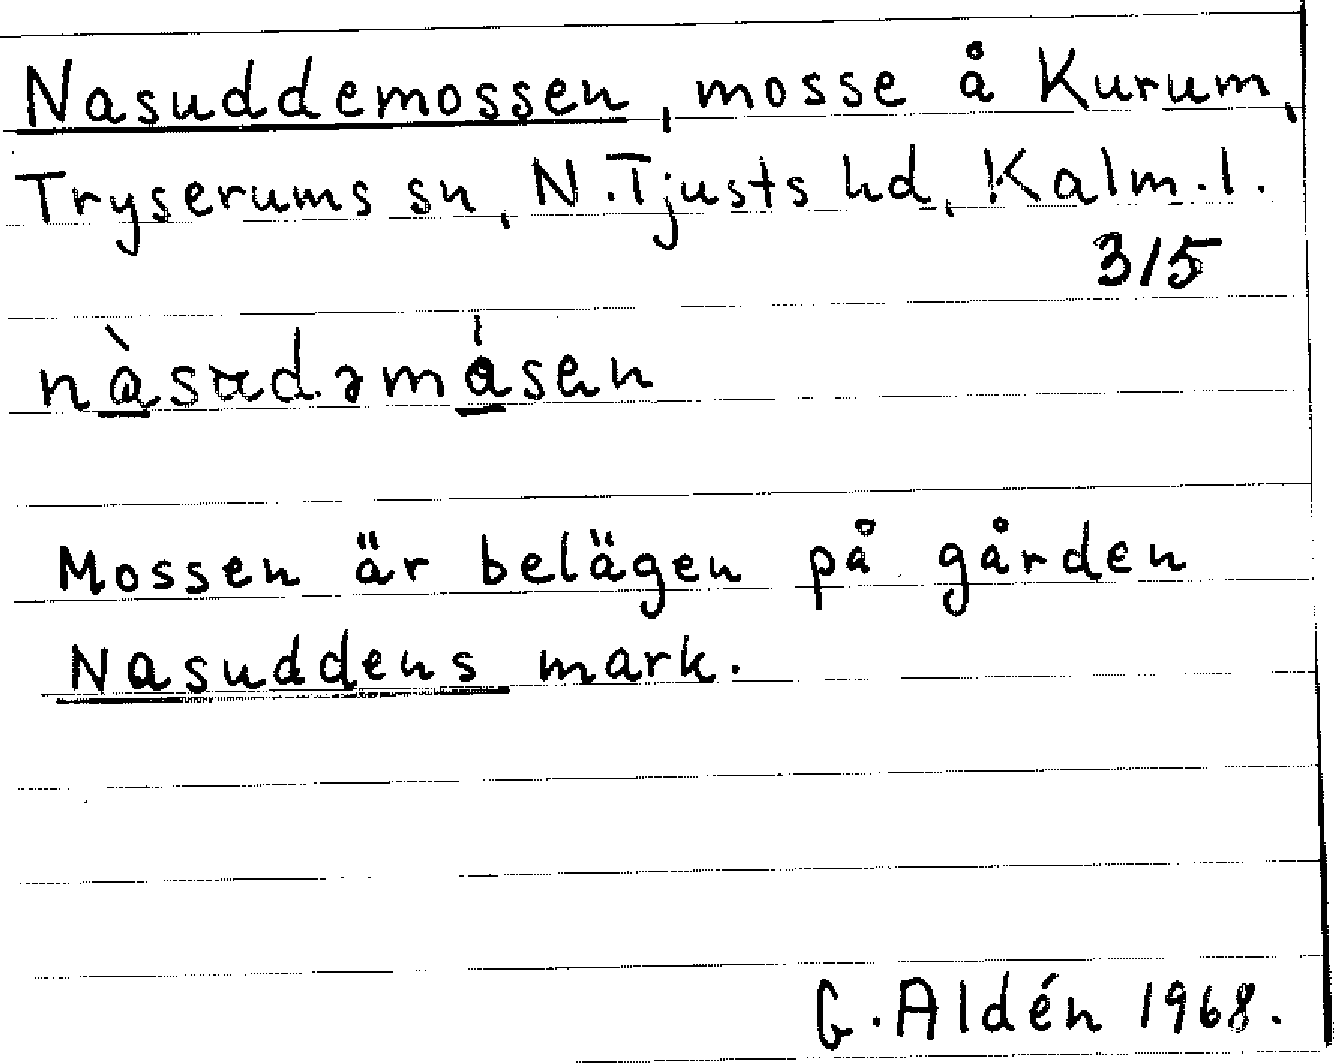 Nasuddemossen, mosse å Kurum,
Tryserums sn, N. Tjusts hd, Kalm. l.
3/5
nàsudəmåsen
Mossen är belägen på gården
Nasuddens mark.
G. Aldén 1968.